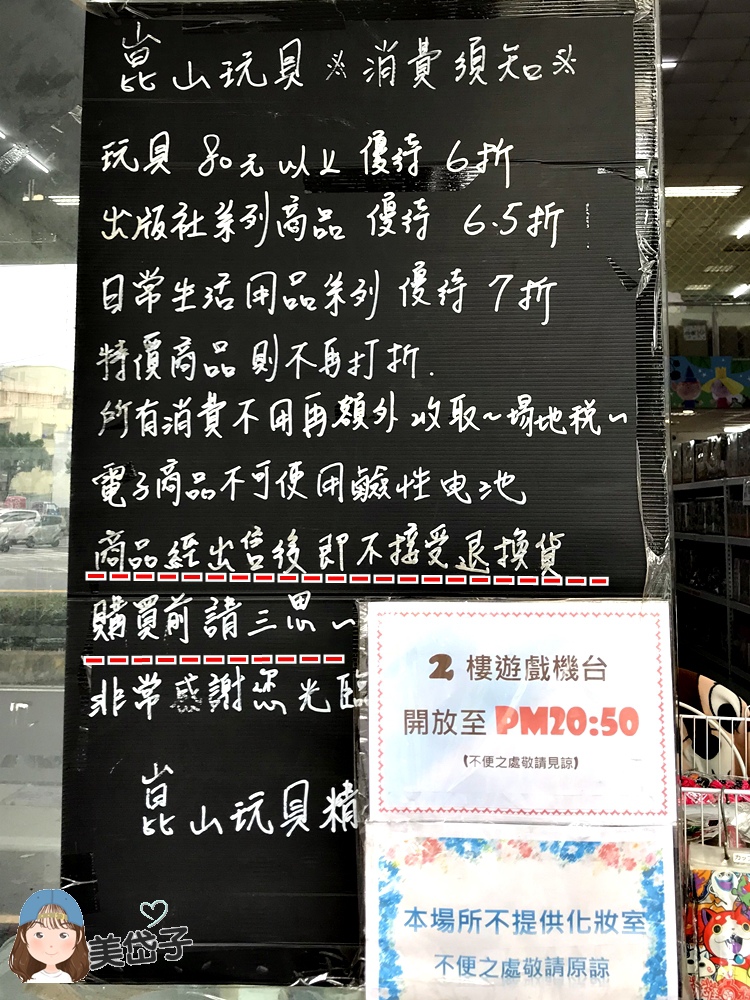 崑山玩具※消費須知※
玩具 80元以上 優待 6折
出版社系列商品 優待 6.5折
日常生活用品系列 優待 7折
特價商品則不再打折.
所有消費不用再額外收取~場地稅~
電子商品不可使用鹼性电池
商品經出售後即不接受退換貨
購買前請三思~
非常感謝您光臨
崑山玩具精
2 樓遊戲機台
開放至 PM20:50
(不便之處敬請見諒)
本場所不提供化妝室
不便之處敬請原諒
美岱子